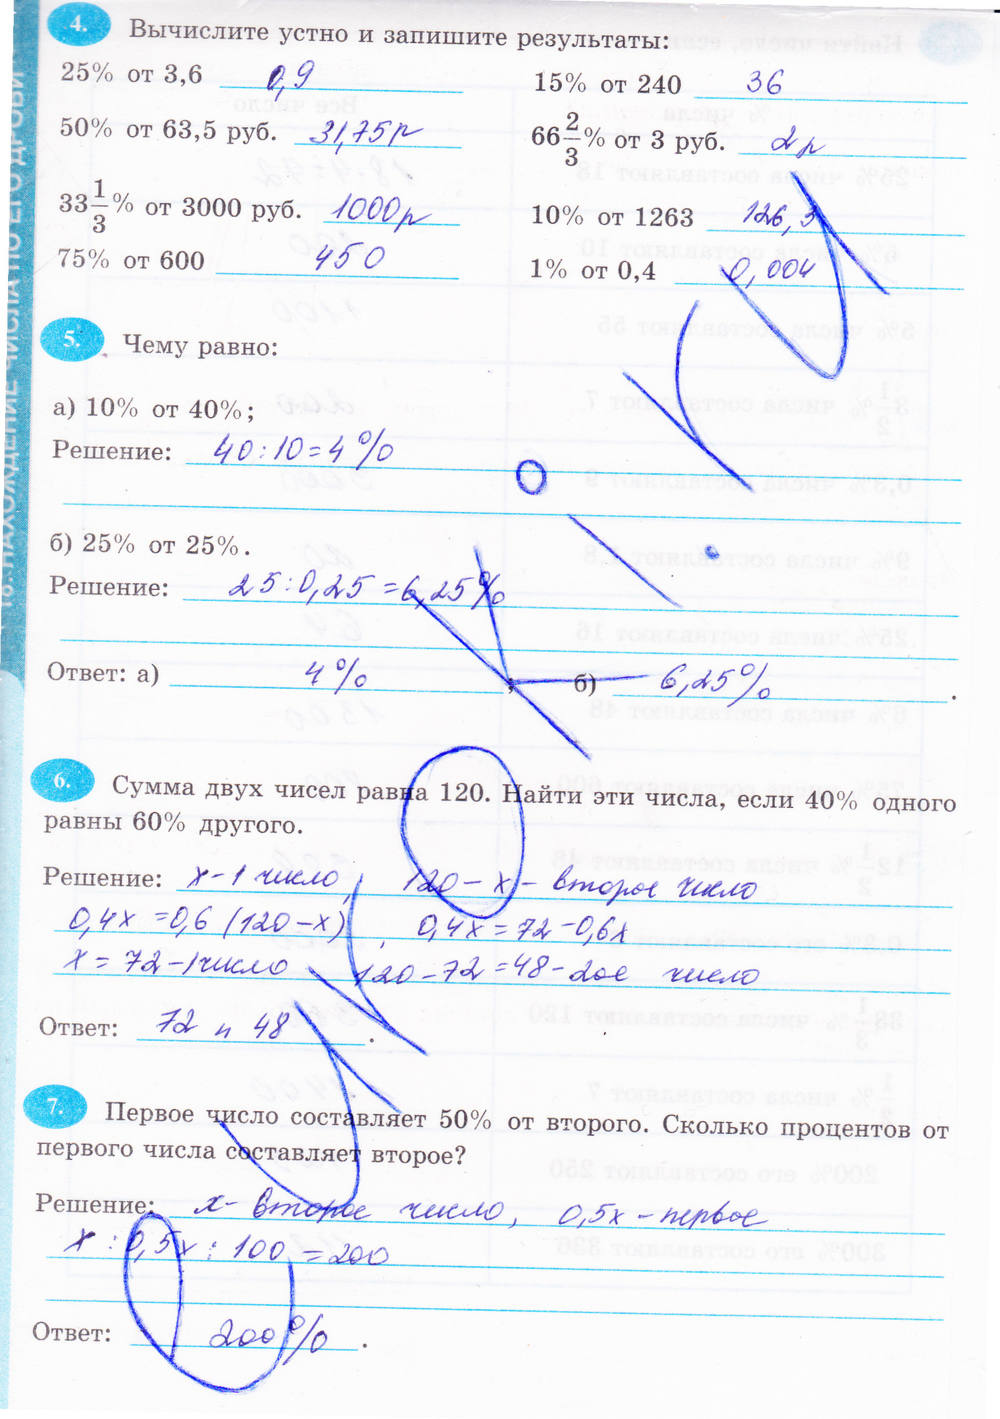 4. Вычислите устно и запишите результаты:
25% от 3,6 0,9 15% от 240 36
50% от 63,5 руб. 31,75р 66 2/3 % от 3 руб. 2р
33 1/3 % от 3000 руб. 1000р 10% от 1263 126,3
75% от 600 450 1% от 0,4 0,004
5. Чему равно:
а) 10% от 40%;
Решение: 40:10=4%
б) 25% от 25%.
Решение: 25:0,25=6,25%
Ответ: а) 4% ; б) 6,25% .
6. Сумма двух чисел равна 120. Найти эти числа, если 40% одного
равны 60% другого.
Решение: х-1 число, 120-х-второе число
0,4х=0,6(120-х), 0,4х=72-0,6х
х=72-1число 120-72=48-2ое число
Ответ: 72 и 48 .
7. Первое число составляет 50% от второго. Сколько процентов от
первого числа составляет второе?
Решение: х-второе число, 0,5х-первое
х:0,5х:100=200
Ответ: 200% .
НАХОЖДЕНИЕ ЧИСЛА ПО ЕГО ДРОБИ